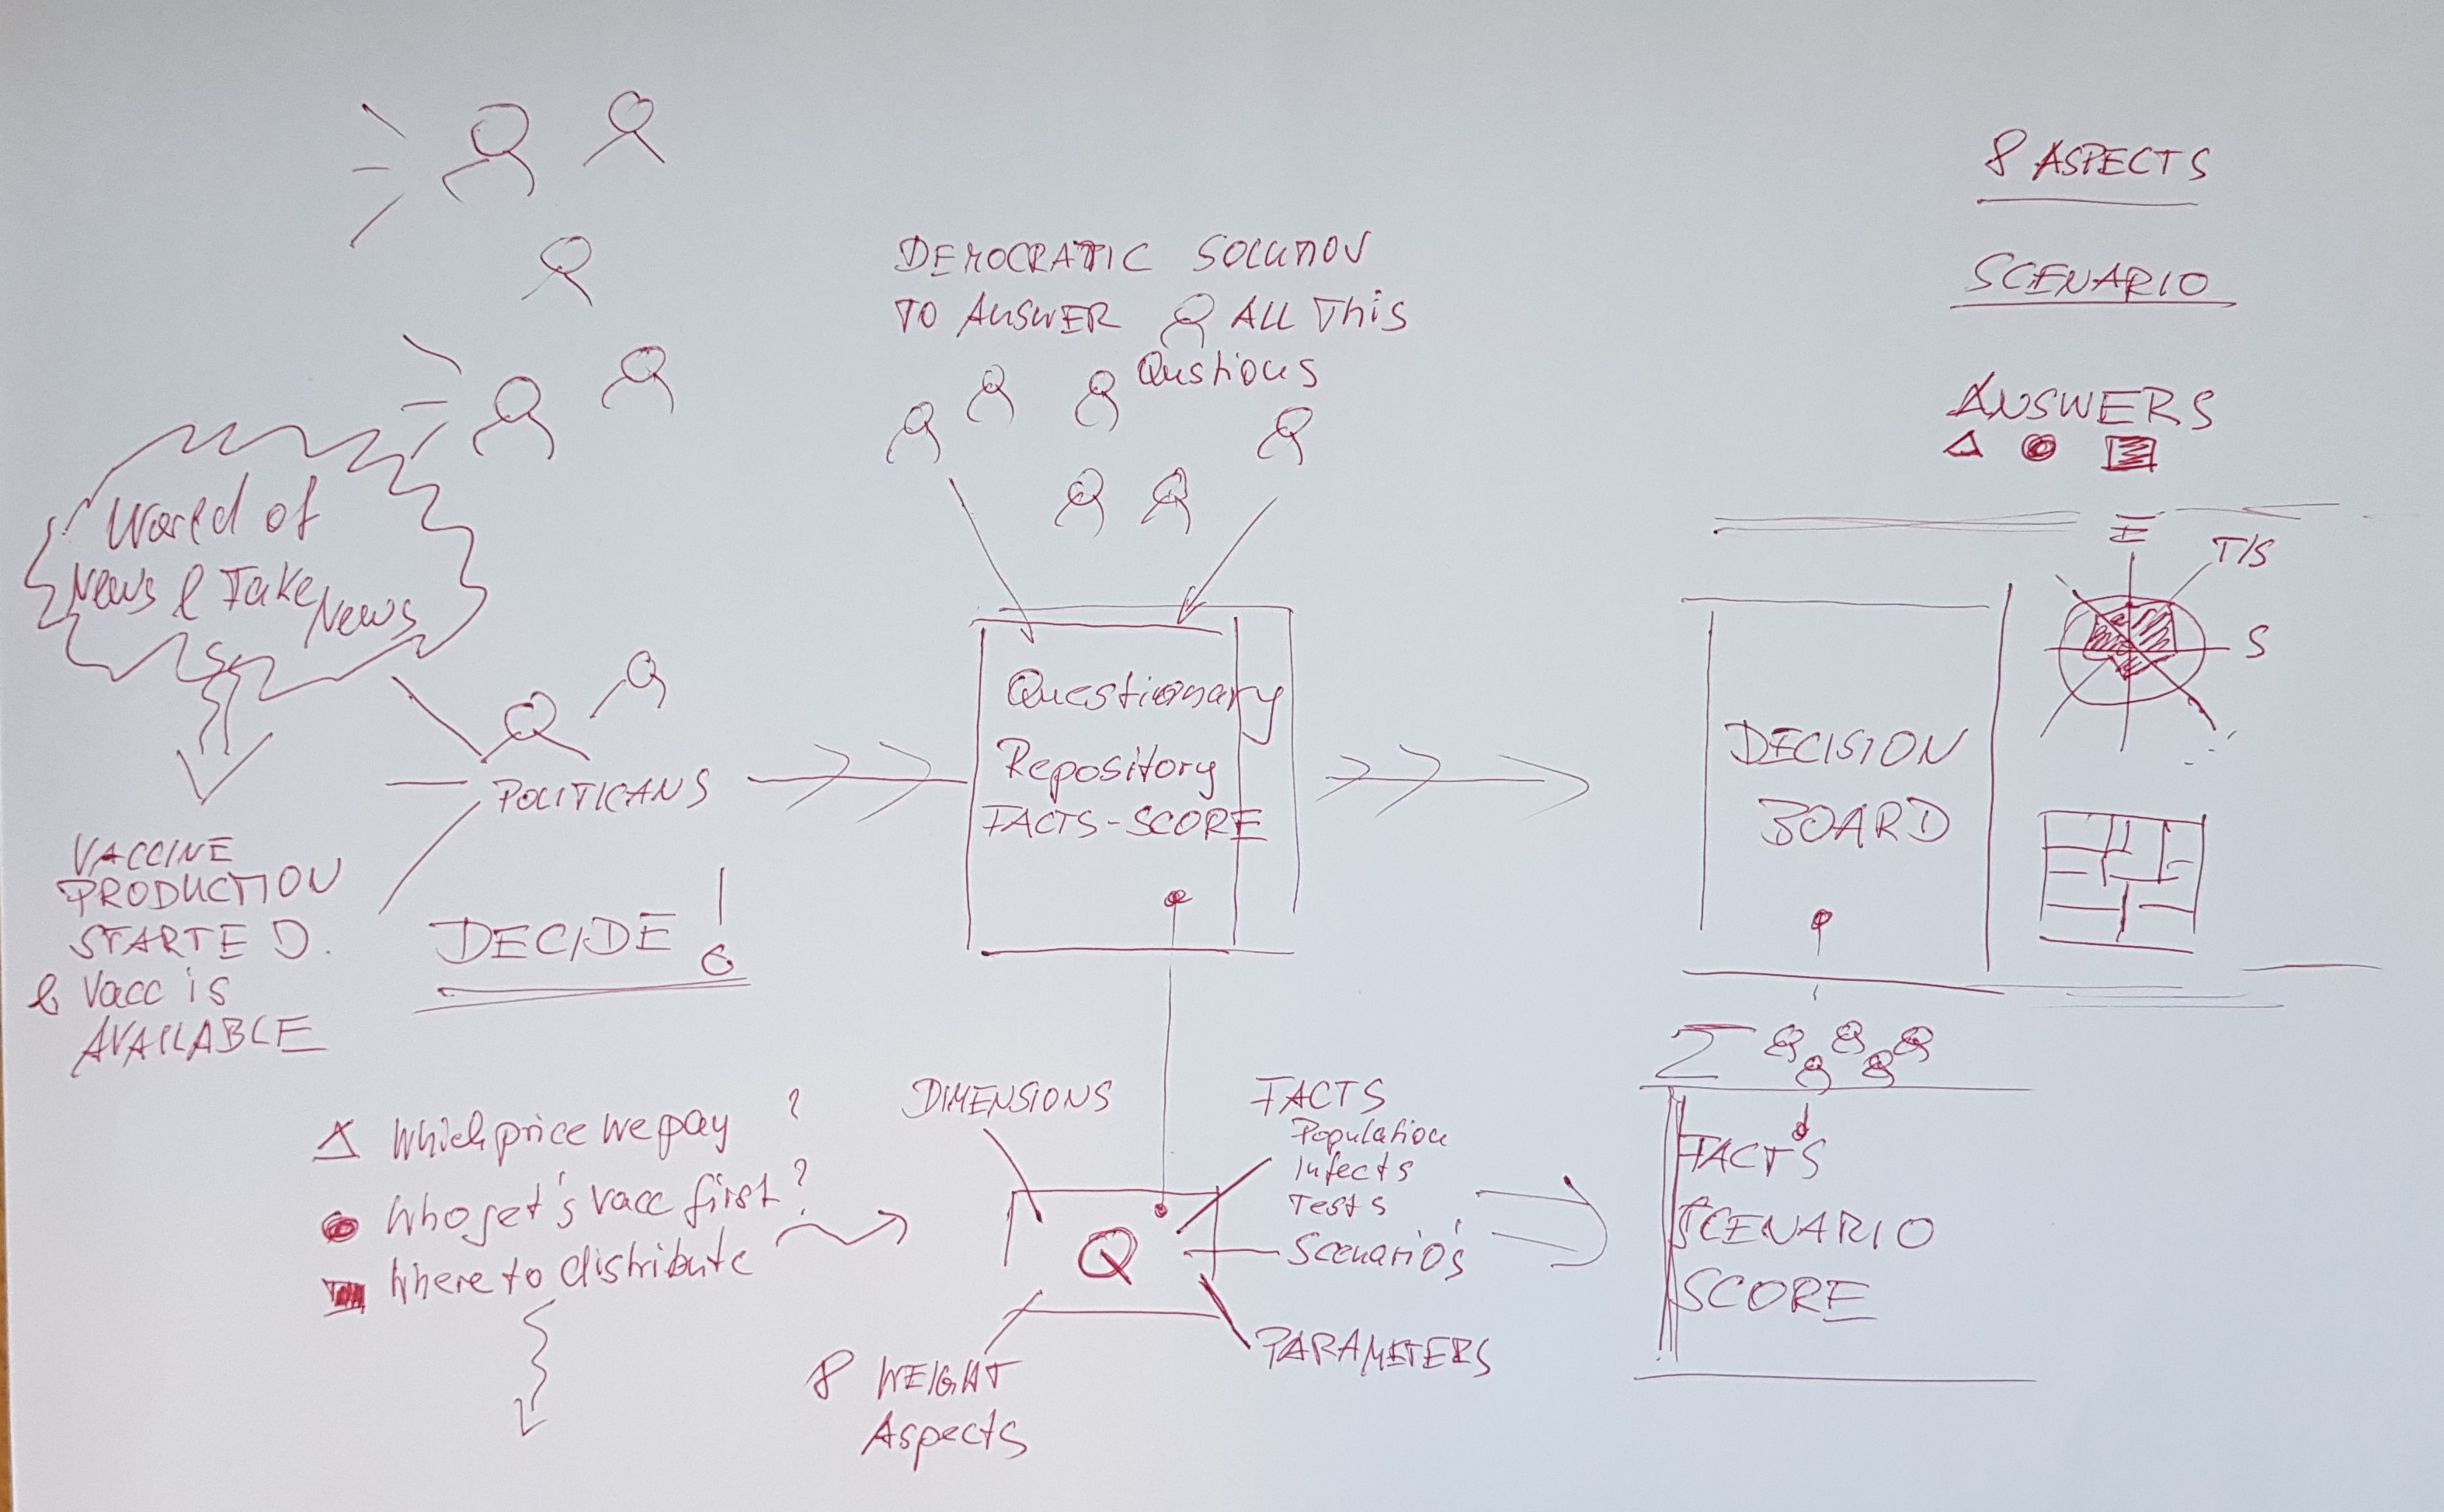 World of
News & Fake News
VACCINE
PRODUCTION
STARTED.
& Vacc is
AVAILABLE
POLITICANS
DECIDE!
△ Which price we pay ?
● Who get's vacc first?
■ Where to distribute
DEMOCRATIC SOLUTION
TO ANSWER ALL This
Qustions
Questionary
Repository
FACTS-SCORE
DIMENSIONS
FACTS
Population
Infects
Tests
Scenario's
Q
PARAMETERS
8 WEIGHT
Aspects
8 ASPECTS
SCENARIO
ANSWERS
E
T/S
S
DECISION
BOARD
Σ
FACTS
SCENARIO
SCORE